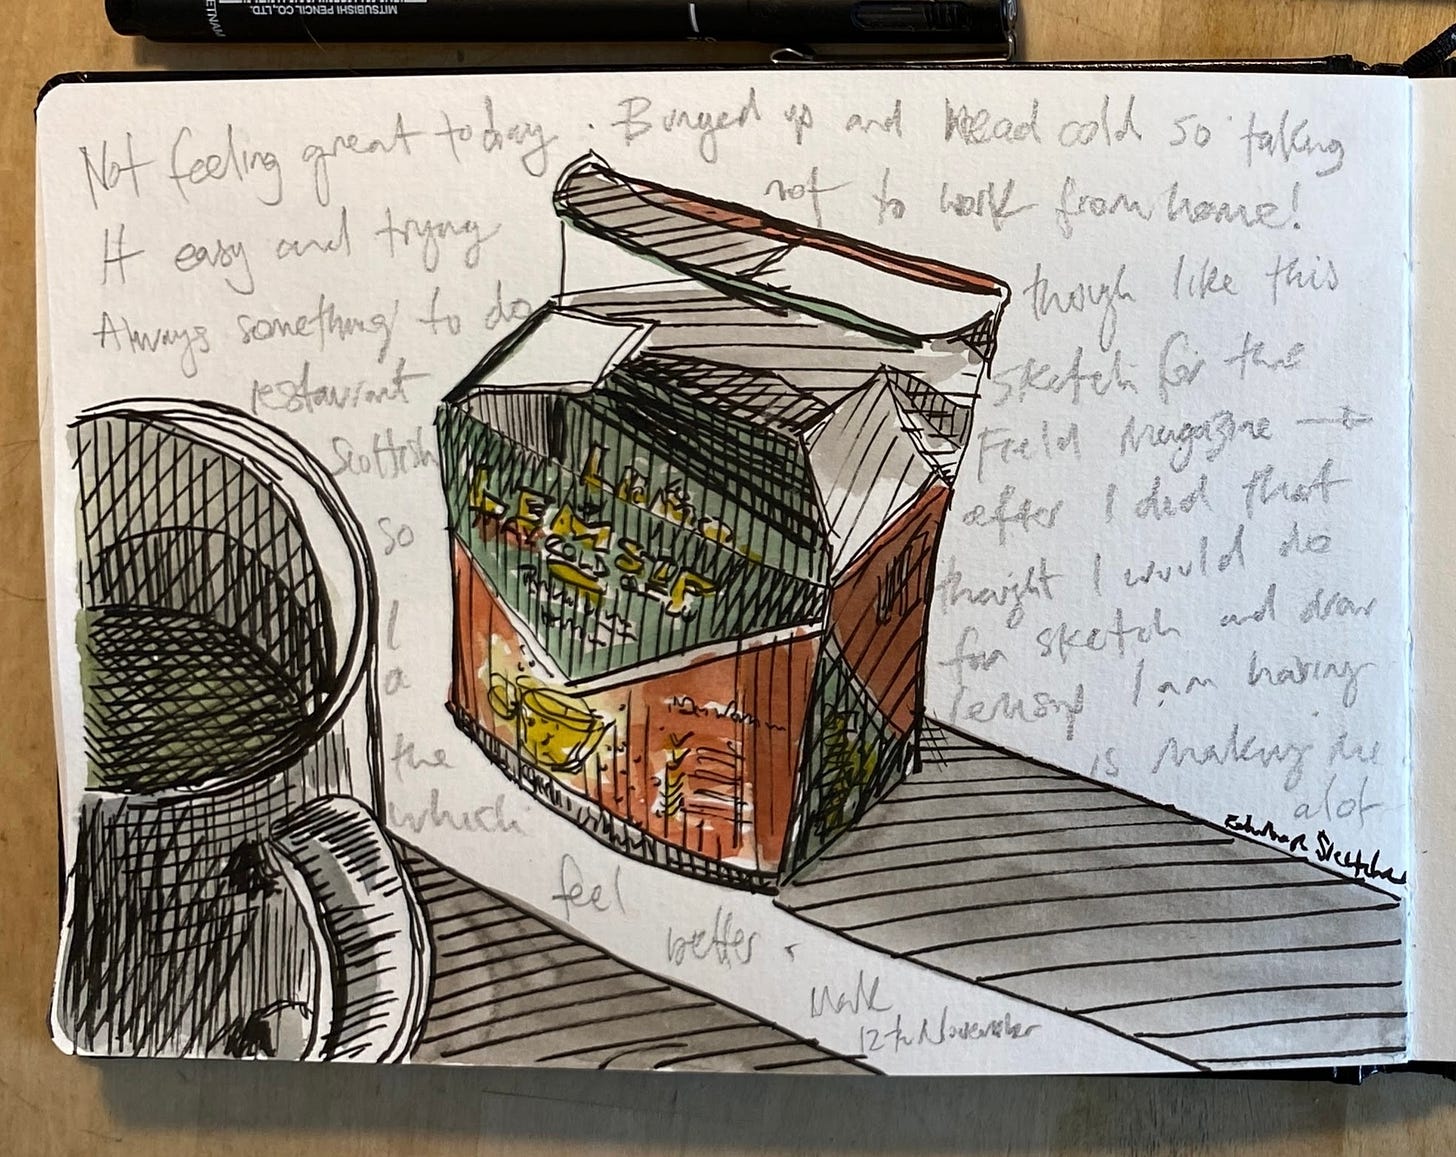 VIETNAM
MITSUBISHI PENCIL CO., LTD.
Not feeling great today. Bunged up and Head cold so taking
It easy and trying not to work from home!
Always something to do though like this
restaurant sketch for the
Scottish Field Magazine
so after I did that
I thought I would do
a fun sketch and draw
the lemsip I am having
which is making me
feel alot
better.
Mark
12th November
LEMSIP
MAX
Edinburgh Sketcher